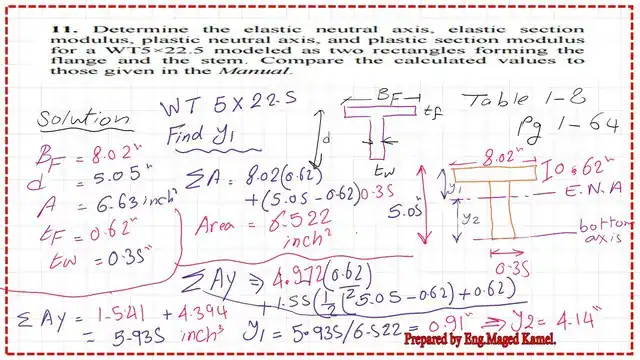 11. Determine the elastic neutral axis, elastic section
modulus, plastic neutral axis, and plastic section modulus
for a WT5×22.5 modeled as two rectangles forming the
flange and the stem. Compare the calculated values to
those given in the Manual.
Solution
BF = 8.02"
d = 5.05"
A = 6.63 inch²
tF = 0.62"
tw = 0.35"
WT 5 X 22.5
Find y1
ΣA = 8.02(0.62)
+(5.05-0.62)0.35
Area = 6.522
inch²
BF
tf
d
tw
Table 1-8
Pg 1-64
8.02"
0.62"
y1
E.N.A
5.05"
y2
bottom
axis
0.35
ΣAy => 4.972(0.62)
+ 1.55(1/2(5.05-0.62)+0.62)
ΣAy = 1.541 + 4.394
= 5.935 inch³
y1 = 5.935/6.522 = 0.91" => y2 = 4.14"
Prepared by Eng.Maged Kamel.